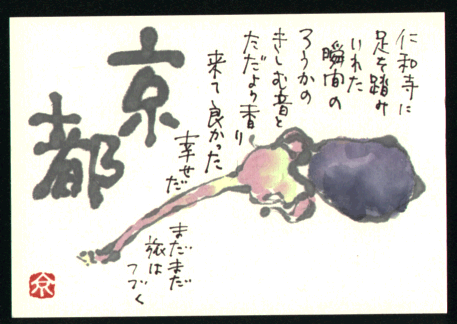 仁和寺に
足を踏み
いれた
瞬間の
ろうかの
きしむ音と
ただよう香り
来て良かった
幸せだ
まだまだ
旅は
つづく
京
都
京